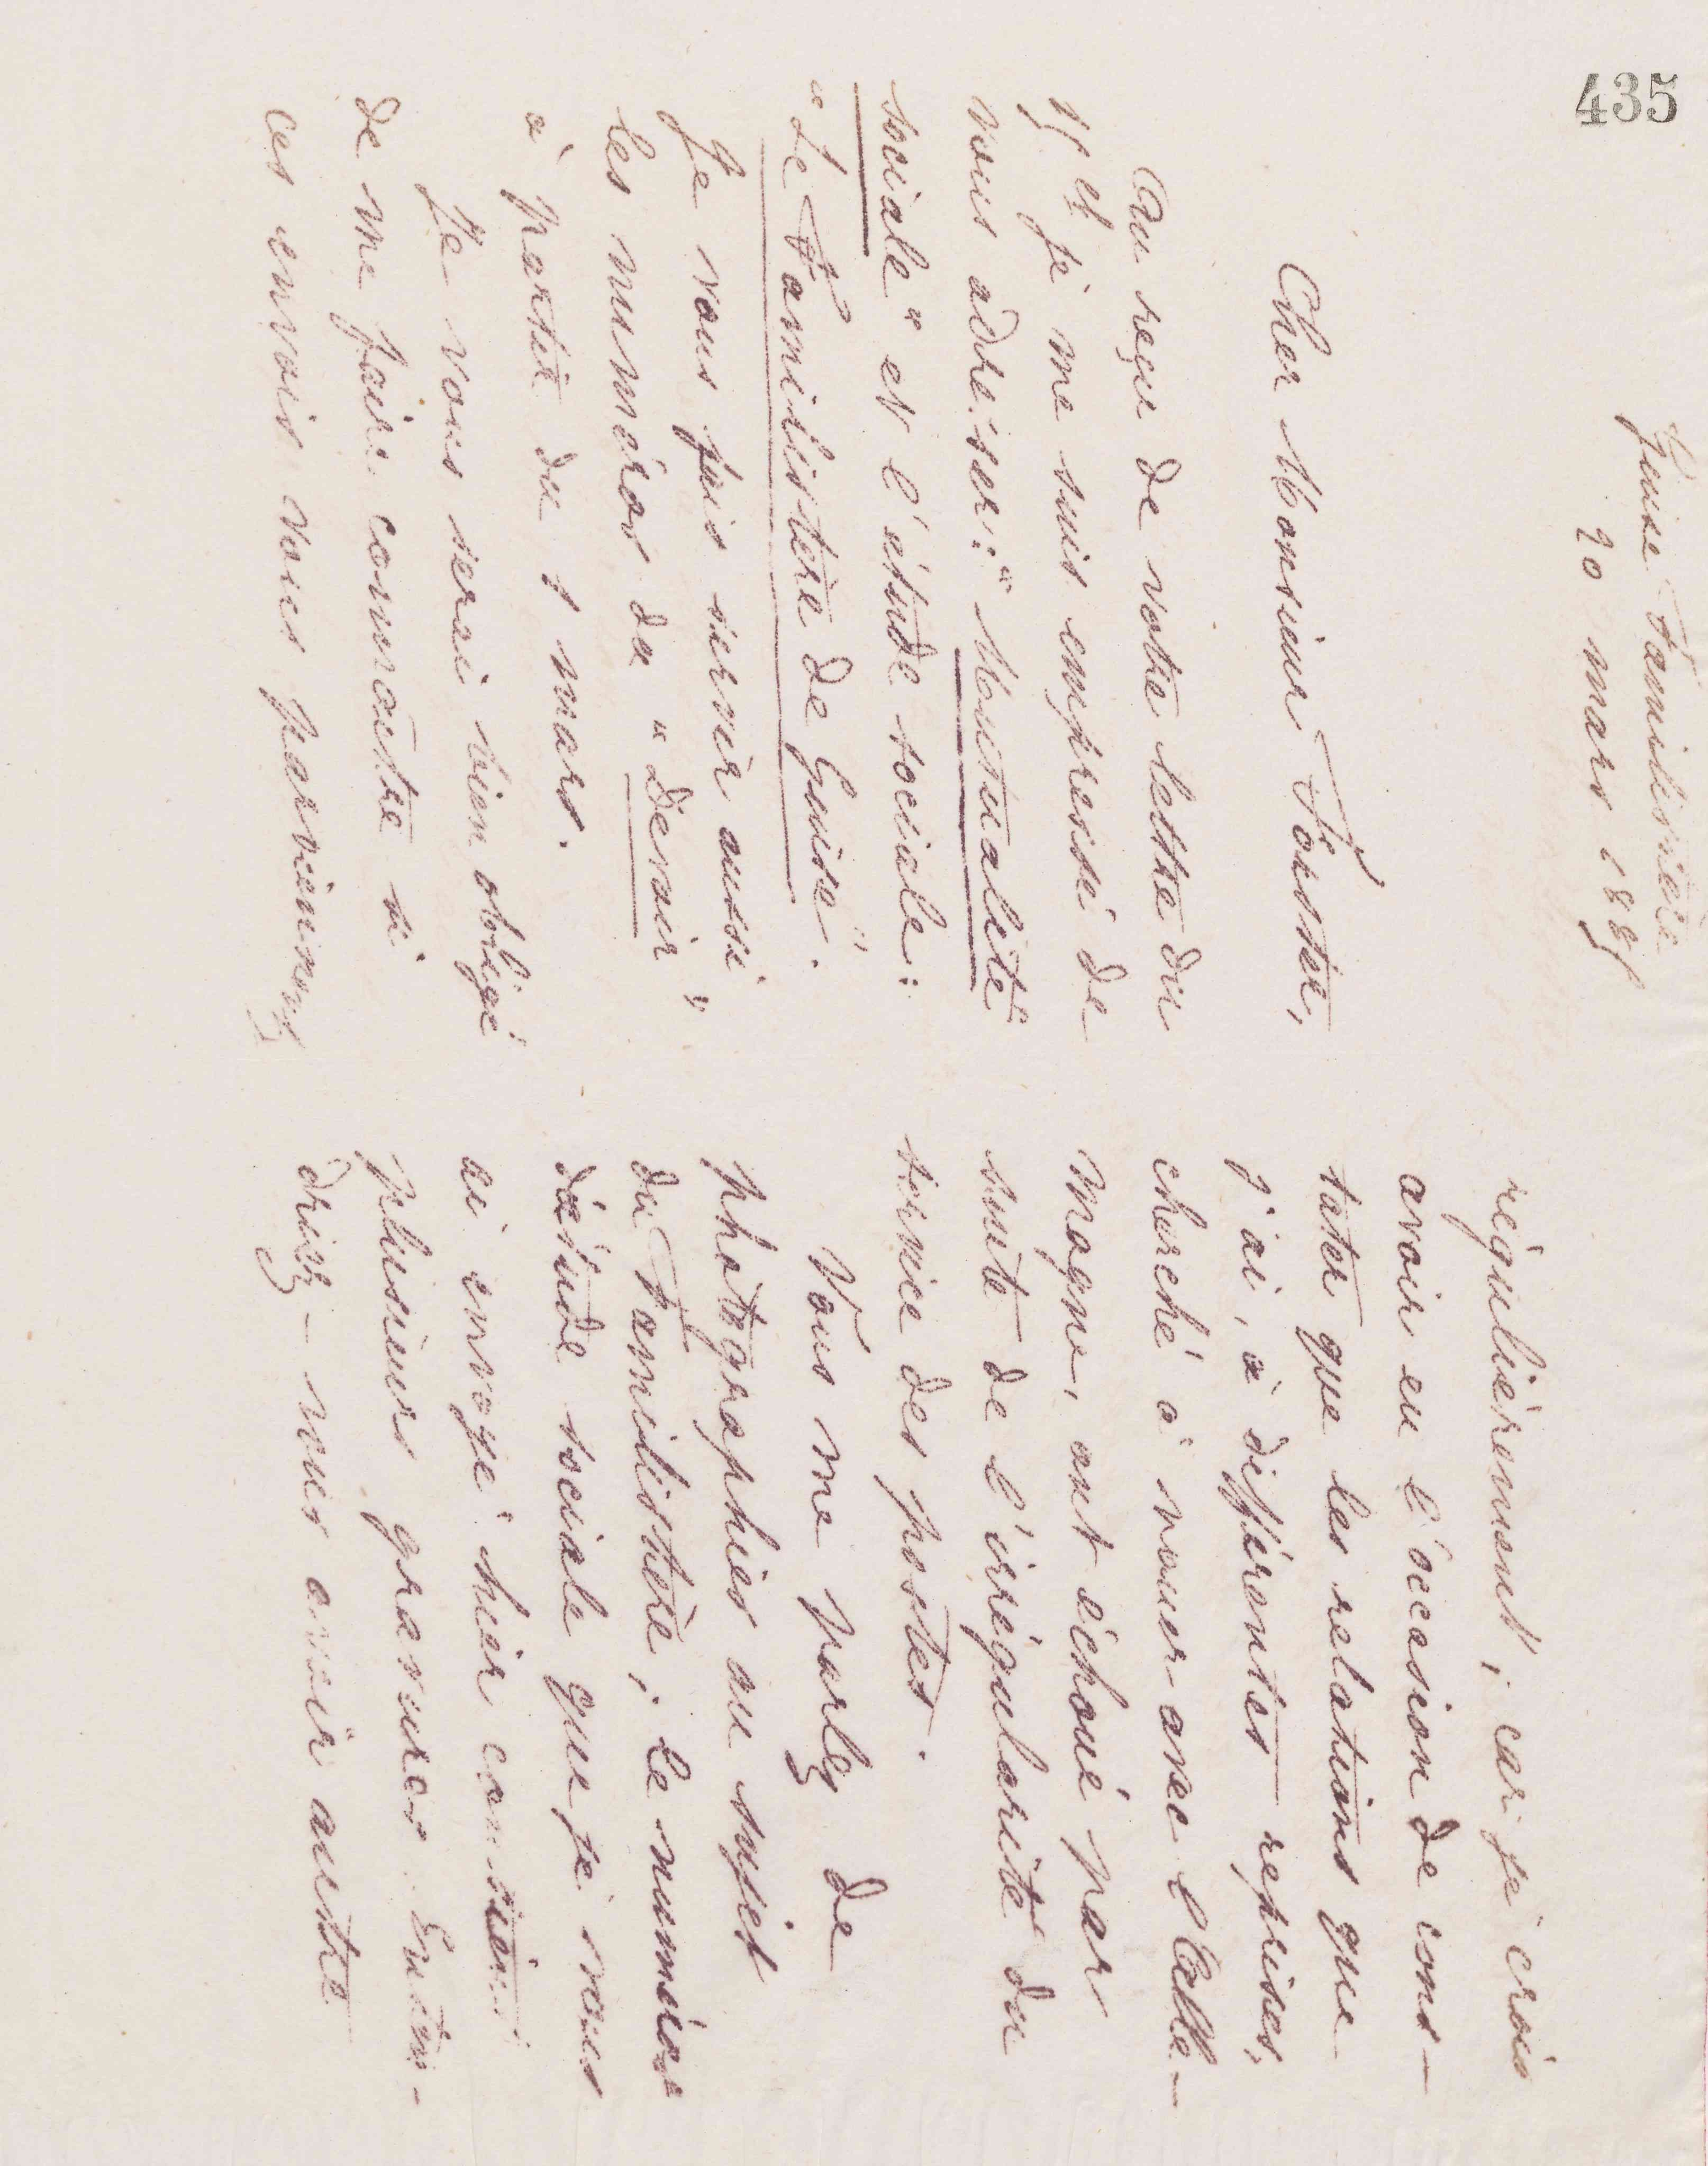 435
Guise Familistère
20 mars 1885
Cher Monsieur Forster,
Au reçu de votre lettre du
15 et je me suis empressé de
vous adresser: "Mutualité
sociale" et l'étude sociale:
"Le Familistère de Guise".
Je vous fais servir aussi
les numéros du "Devoir"
à partir du 1 mars.
Je vous serai bien obligé
de me faire connaître si
ces envois vous parviennent
régulièrement, car je crois
avoir eu l'occasion de cons-
tater que les relations que
j'ai, à différentes reprises,
cherché à nouer avec l'Alle-
magne, ont échoué par
suite de l'irrégularité du
service des postes.
Vous me parlez de
photographies au sujet
du Familistère; le numéro
d'étude sociale que je vous
ai envoyé hier contient
plusieurs gravures. Enten-
driez-vous avoir autre